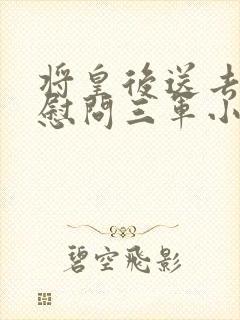 將皇後送去
慰問三軍小
碧空飛影